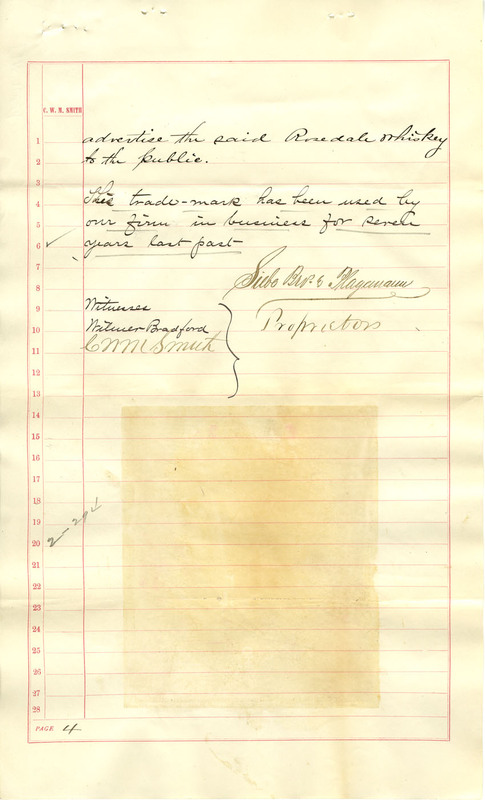 C. W. M. SMITH
1 advertise the said Rosedale Whiskey
2 to the public.
3
4 This trade-mark has been used by
5 our firm in business for seven
6 years last past
7
8 Siebe Bros. & Plagemann
9 Witnesses
10 Witmer Bradford Proprietors
11 C W M Smith
12
13
14
15
16
17
18
19
20
21
22
23
24
25
26
27
28
PAGE 4